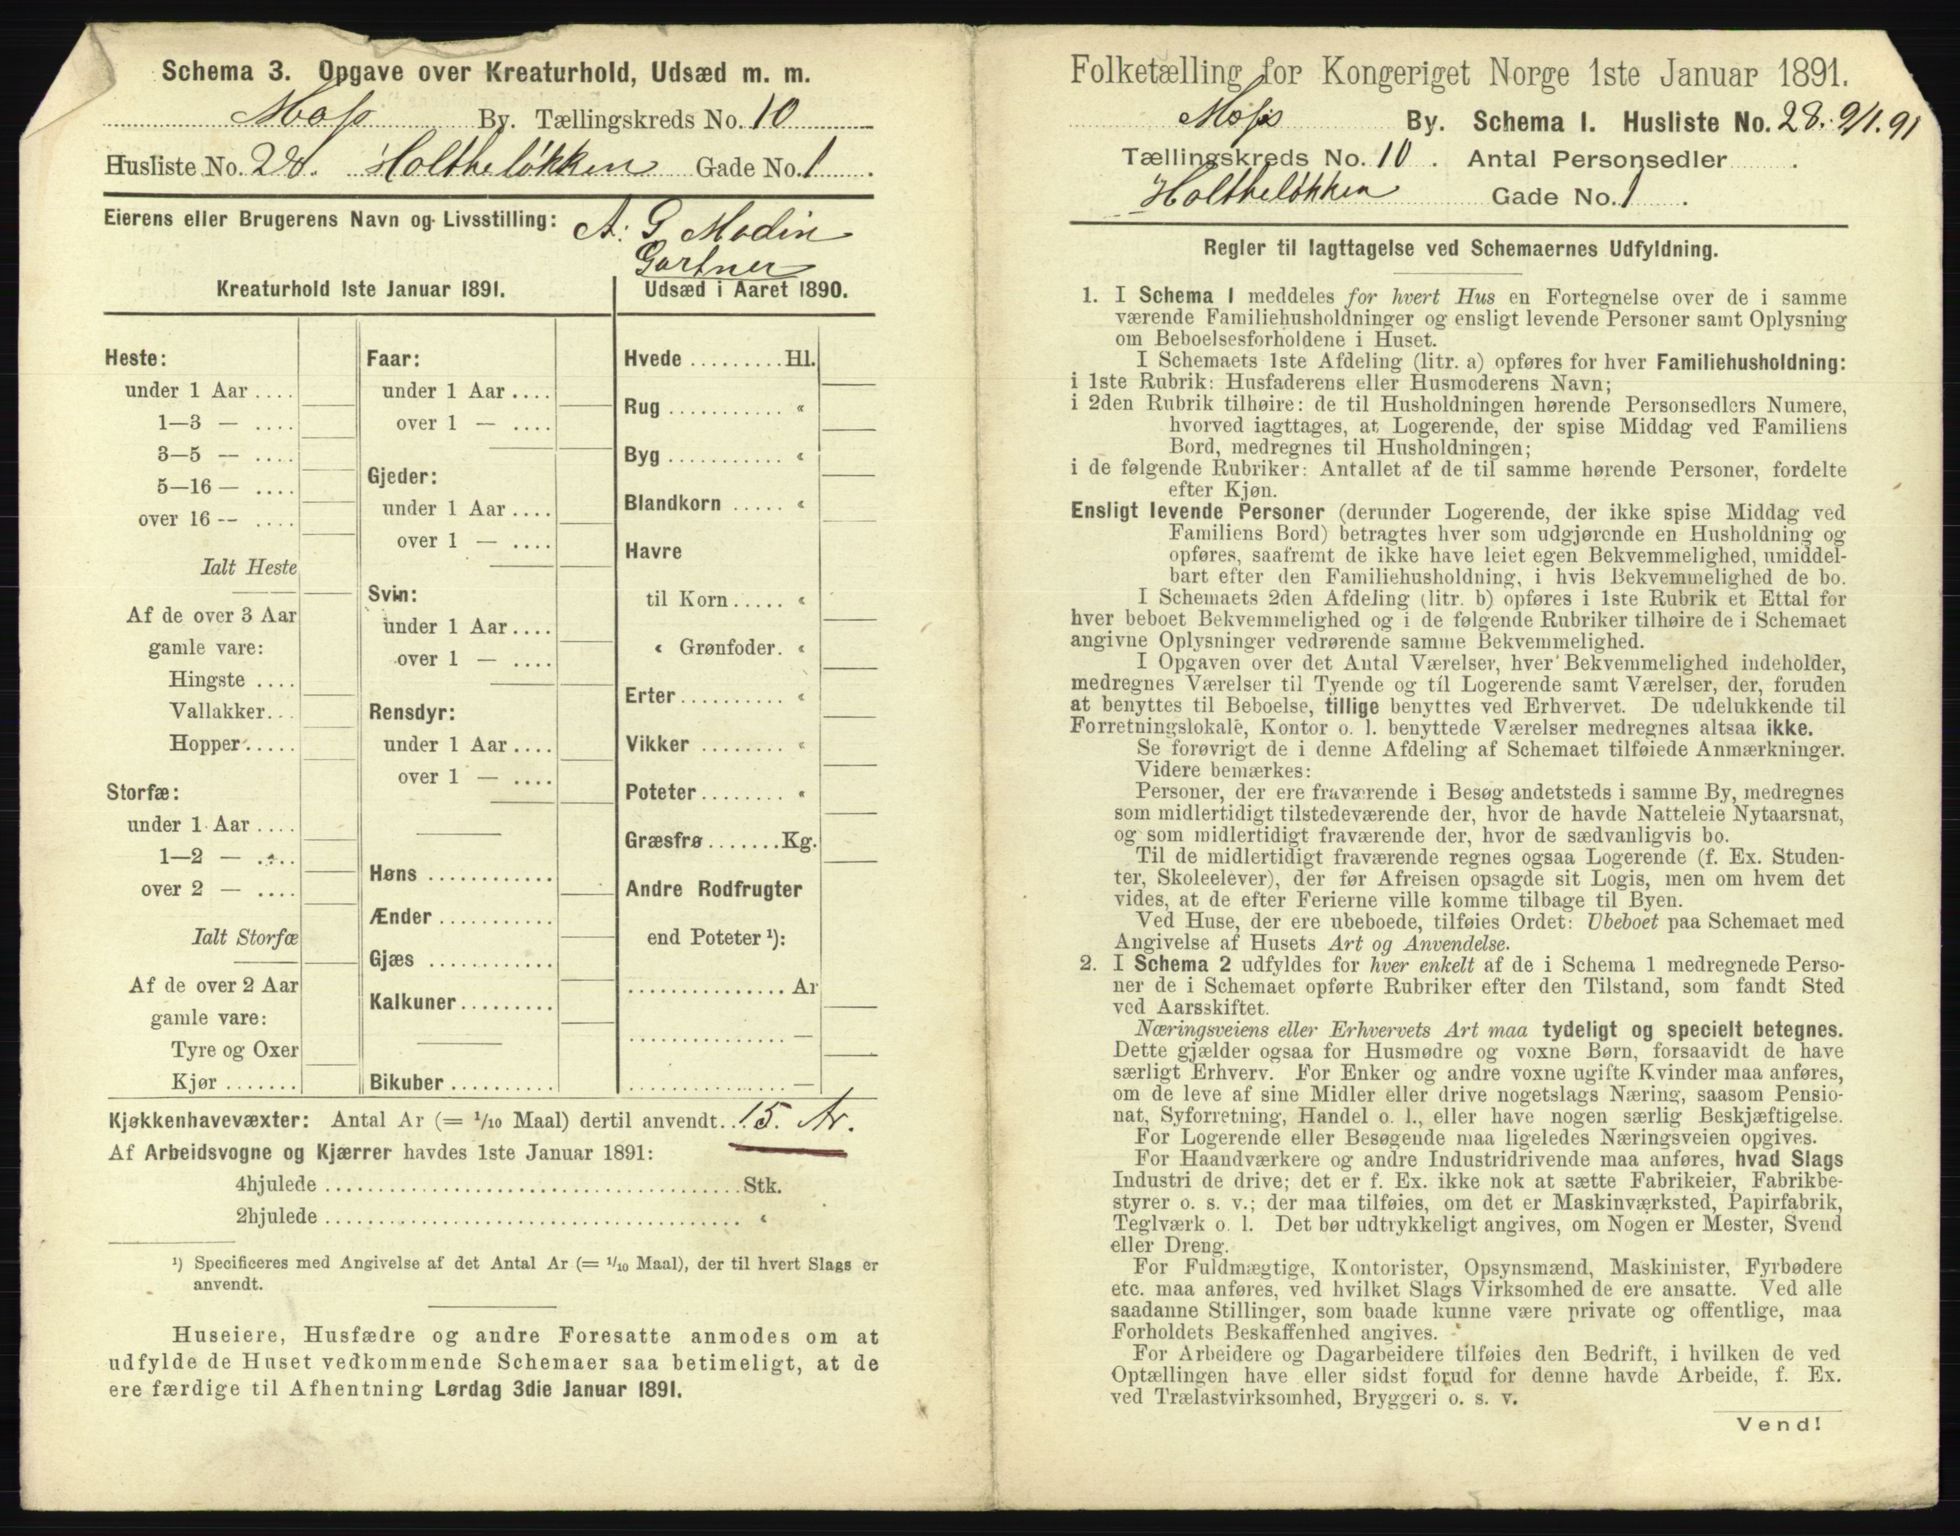 Schema 3. Opgave over Kreaturhold, Udsæd m. m.
Moss By. Tællingskreds No. 10
Husliste No. 28. Holtheløkken Gade No. 1.
Eierens eller Brugerens Navn og Livsstilling: A. G. Modin
Gartner
Kreaturhold 1ste Januar 1891.
Heste:
under 1 Aar ....
1—3 — ....
3—5 — ....
5—16 — ....
over 16 -- ....
Ialt Heste
Af de over 3 Aar
gamle vare:
Hingste ....
Vallakker...
Hopper.....
Storfæ:
under 1 Aar ....
1—2 — ....
over 2 — ....
Ialt Storfæ
Af de over 2 Aar
gamle vare:
Tyre og Oxer
Kjør .......
Faar:
under 1 Aar ....
over 1 — ....
Gjeder:
under 1 Aar ....
over 1 — ....
Svin:
under 1 Aar ....
over 1 — ....
Rensdyr:
under 1 Aar ....
over 1 — ....
Høns ............
Ænder ...........
Gjæs ............
Kalkuner.........
Bikuber ..........
Udsæd i Aaret 1890.
Hvede .........Hl.
Rug ........... "
Byg ........... "
Blandkorn ..... "
Havre
til Korn ..... "
" Grønfoder. "
Erter.......... "
Vikker ........ "
Poteter ........ "
Græsfrø .......Kg.
Andre Rodfrugter
end Poteter ¹):
............... Ar
............... —
............... —
Kjøkkenhavevæxter: Antal Ar (= 1/10 Maal) dertil anvendt.. 15. Ar.
Af Arbeidsvogne og Kjærrer havdes 1ste Januar 1891:
4hjulede ........................................ Stk.
2hjulede ........................................ "
¹) Specificeres med Angivelse af det Antal Ar (= 1/10 Maal), der til hvert Slags er
anvendt.
Huseiere, Husfædre og andre Foresatte anmodes om at
udfylde de Huset vedkommende Schemaer saa betimeligt, at de
ere færdige til Afhentning Lørdag 3die Januar 1891.
Folketælling for Kongeriget Norge 1ste Januar 1891.
Moss By. Schema I. Husliste No. 28. 9/1.91
Tællingskreds No. 10. Antal Personsedler .
Holtheløkken Gade No. 1.
Regler til Iagttagelse ved Schemaernes Udfyldning.
1. I Schema 1 meddeles for hvert Hus en Fortegnelse over de i samme
værende Familiehusholdninger og ensligt levende Personer samt Oplysning
om Beboelsesforholdene i Huset.
I Schemaets 1ste Afdeling (litr. a) opføres for hver Familiehusholdning:
i 1ste Rubrik: Husfaderens eller Husmoderens Navn;
i 2den Rubrik tilhøire: de til Husholdningen hørende Personsedlers Numere,
hvorved iagttages, at Logerende, der spise Middag ved Familiens
Bord, medregnes til Husholdningen;
i de følgende Rubriker: Antallet af de til samme hørende Personer, fordelte
efter Kjøn.
Ensligt levende Personer (derunder Logerende, der ikke spise Middag ved
Familiens Bord) betragtes hver som udgjørende en Husholdning og
opføres, saafremt de ikke have leiet egen Bekvemmelighed, umiddel-
bart efter den Familiehusholdning, i hvis Bekvemmelighed de bo.
I Schemaets 2den Afdeling (litr. b) opføres i 1ste Rubrik et Ettal for
hver beboet Bekvemmelighed og i de følgende Rubriker tilhøire de i Schemaet
angivne Oplysninger vedrørende samme Bekvemmelighed.
I Opgaven over det Antal Værelser, hver Bekvemmelighed indeholder,
medregnes Værelser til Tyende og til Logerende samt Værelser, der, foruden
at benyttes til Beboelse, tillige benyttes ved Erhvervet. De udelukkende til
Forretningslokale, Kontor o. l. benyttede Værelser medregnes altsaa ikke.
Se forøvrigt de i denne Afdeling af Schemaet tilføiede Anmærkninger.
Videre bemærkes:
Personer, der ere fraværende i Besøg andetsteds i samme By, medregnes
som midlertidigt tilstedeværende der, hvor de havde Natteleie Nytaarsnat,
og som midlertidigt fraværende der, hvor de sædvanligvis bo.
Til de midlertidigt fraværende regnes ogsaa Logerende (f. Ex. Studen-
ter, Skoleelever), der før Afreisen opsagde sit Logis, men om hvem det
vides, at de efter Ferierne ville komme tilbage til Byen.
Ved Huse, der ere ubeboede, tilføies Ordet: Ubeboet paa Schemaet med
Angivelse af Husets Art og Anvendelse.
2. I Schema 2 udfyldes for hver enkelt af de i Schema 1 medregnede Perso-
ner de i Schemaet opførte Rubriker efter den Tilstand, som fandt Sted
ved Aarsskiftet.
Næringsveiens eller Erhvervets Art maa tydeligt og specielt betegnes.
Dette gjælder ogsaa for Husmødre og voxne Børn, forsaavidt de have
særligt Erhverv. For Enker og andre voxne ugifte Kvinder maa anføres,
om de leve af sine Midler eller drive nogetslags Næring, saasom Pensio-
nat, Syforretning, Handel o. l., eller have nogen særlig Beskjæftigelse.
For Logerende eller Besøgende maa ligeledes Næringsveien opgives.
For Haandværkere og andre Industridrivende maa anføres, hvad Slags
Industri de drive; det er f. Ex. ikke nok at sætte Fabrikeier, Fabrikbe-
styrer o. s. v.; der maa tilføies, om det er Maskinværksted, Papirfabrik,
Teglværk o. l. Det bør udtrykkeligt angives, om Nogen er Mester, Svend
eller Dreng.
For Fuldmægtige, Kontorister, Opsynsmænd, Maskinister, Fyrbødere
etc. maa anføres, ved hvilket Slags Virksomhed de ere ansatte. Ved alle
saadanne Stillinger, som baade kunne være private og offentlige, maa
Forholdets Beskaffenhed angives.
For Arbeidere og Dagarbeidere tilføies den Bedrift, i hvilken de ved
Optællingen have eller sidst forud for denne havde Arbeide, f. Ex.
ved Trælastvirksomhed, Bryggeri o. s. v.
Vend!